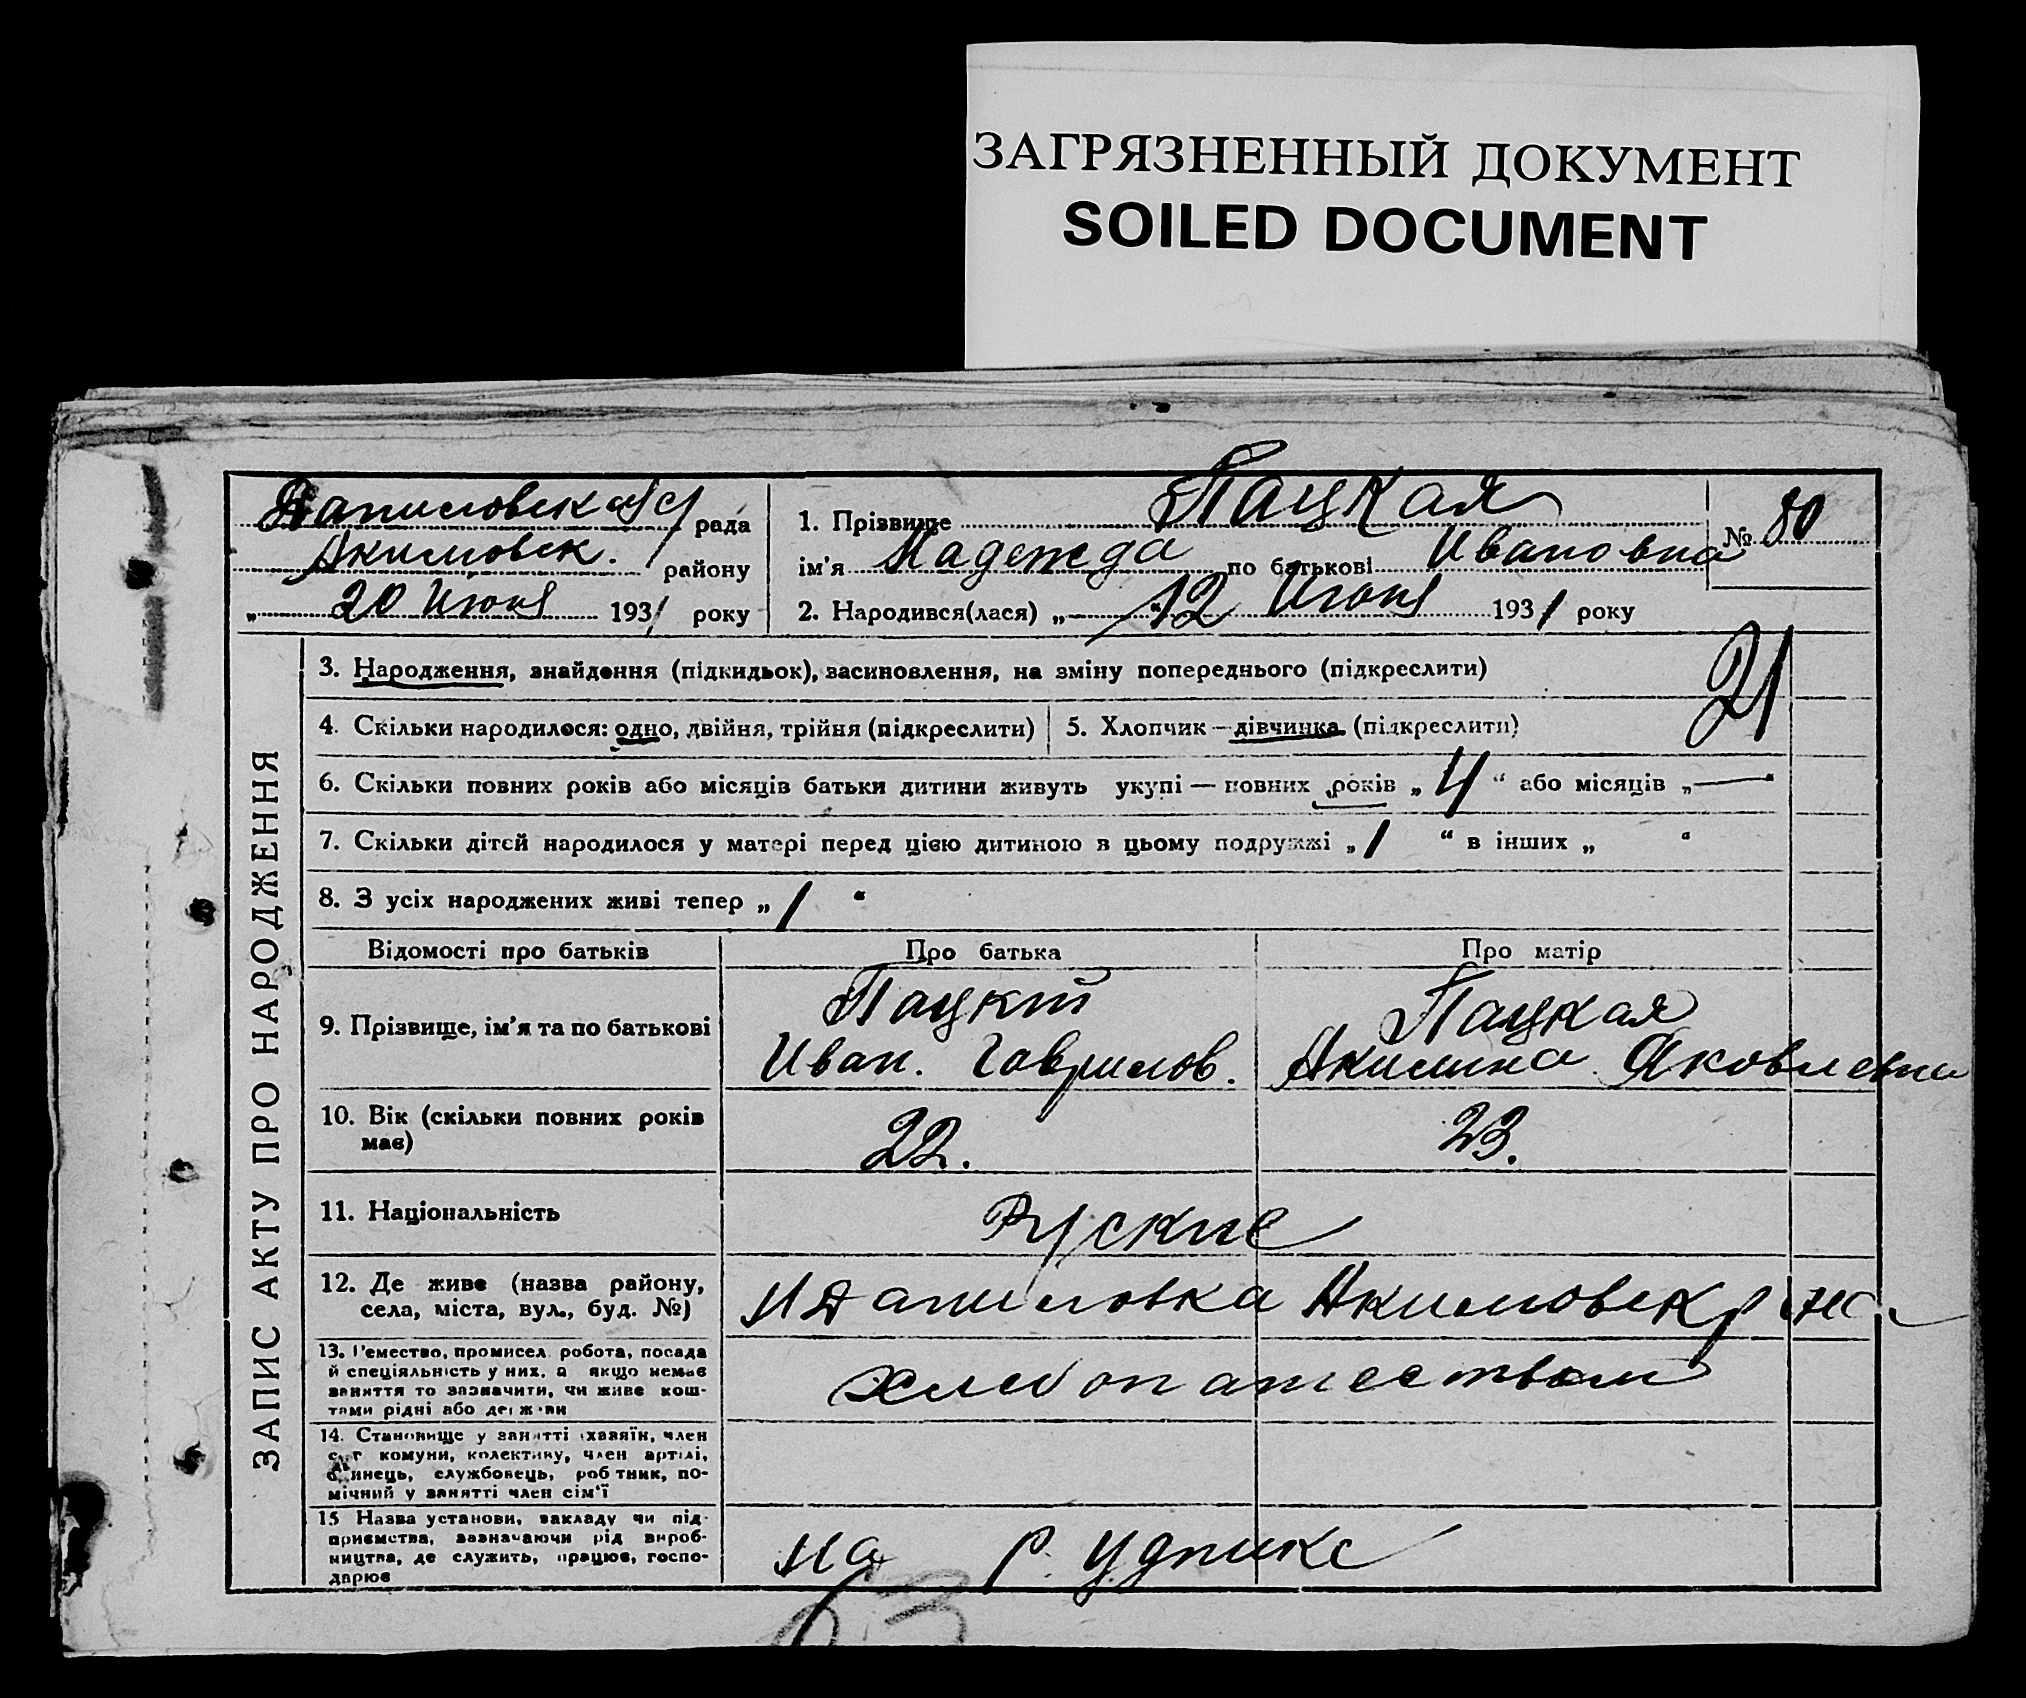 ЗАГРЯЗНЕННЫЙ ДОКУМЕНТ
SOILED DOCUMENT
Даниловская с/ рада
Акимовск. району
„ 20 Июня 1931 року
1. Прізвище Пацкая
ім'я Надежда по батькові Ивановна
2. Народився(лася) „ 12 Июня 1931 року
№ 80
21
ЗАПИС АКТУ ПРО НАРОДЖЕННЯ
3. Народження, знайдення (підкидьок), засиновлення, на зміну попереднього (підкреслити)
4. Скільки народилося: одно, двійня, трійня (підкреслити)
5. Хлопчик — дівчинка (підкреслити)
6. Скільки повних років або місяців батьки дитини живуть укупі — повних років „ 4 “ або місяців „ — “
7. Скільки дітей народилося у матері перед цією дитиною в цьому подружжі „ 1 “ в інших „ “
8. З усіх народжених живі тепер „ 1 “
Відомості про батьків
Про батька
Про матір
9. Прізвище, ім'я та по батькові
Пацкий
Иван. Гаврилов.
Пацкая
Акилина Яковлевна
10. Вік (скільки повних років
має)
22.
23.
11. Національність
Руские
12. Де живе (назва району,
села, міста, вул., буд. №)
Даниловка Акимовск р-на
13. Ремество, промисел, робота, посада
й спеціяльність у них, а якщо немає
заняття то зазначити, чи живе кош-
тами рідні або держави
хлебопашеством
14. Становище у занятті (хазяїн, член
с.-г. комуни, колективу, член артілі,
одинець, службовець, робітник, по-
мічний у занятті член сім'ї
15 Назва установи, закладу чи під-
приємства, зазначаючи рід вироб-
ництва, де служить, працює, госпо-
дарює
на руднике